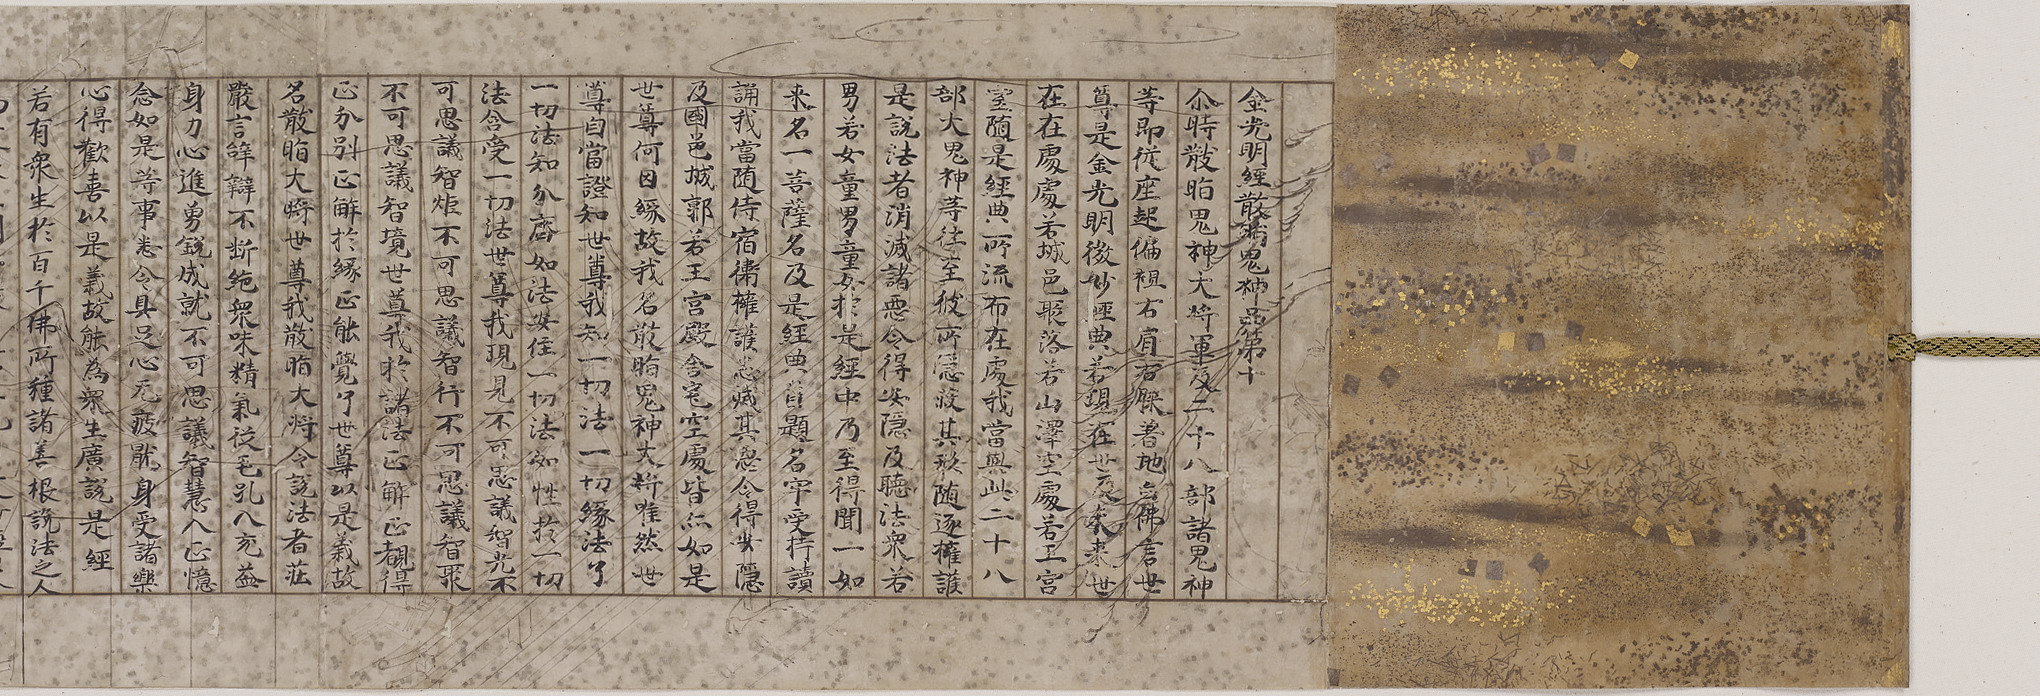 金光明經散脂鬼神品第十
尒時散脂鬼神大將軍及二十八部諸鬼神
等即從座起偏袒右肩右膝著地白佛言世
尊是金光明微妙經典若現在世及未來世
在在處處若城邑聚落若山澤空處若王宮
宅隨是經典所流布在處我當與此二十八
部大鬼神等往至彼所隱蔽其形隨逐擁護
是說法者消滅諸惡令得安隱及聽法衆若
男若女童男童女於是經中乃至得聞一如
来名一菩薩名及是經典首題名字受持讀
誦我當随侍宿衛擁護悉滅其惡令得安隱
及國邑城郭若王宮殿舍宅空處皆亦如是
世尊何因緣故我名散脂鬼神大將唯然世
尊自當證知世尊我知一切法一切緣法了
一切法知法分齊如法安住一切法如性於一切
法含受一切法世尊我現見不可思議智光不
可思議智炬不可思議智行不可思議智聚
不可思議智境世尊我於諸法正解正觀得
正分別正解於緣正能覺了世尊以是義故
名散脂大將世尊我散脂大將令說法者莊
嚴言辭辯不斷絕衆味精氣從毛孔入充益
身力心進勇銳成就不可思議智慧入正憶
念如是等事悉令具足心无疲猒身受諸樂
心得歡喜以是義故能為衆生廣說是經
若有衆生於百千佛所種諸善根說法之人